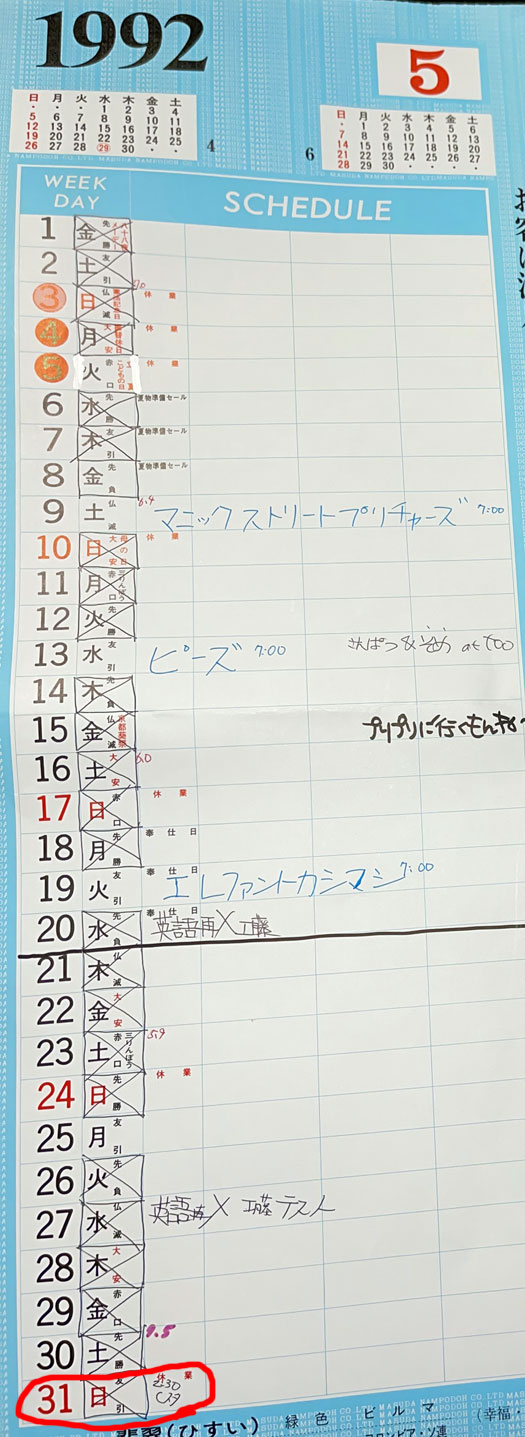 1992
5
日 月 火 水 木 金 土
・ ・ ・ 1 2 3 4
5 6 7 8 9 10 11
12 13 14 15 16 17 18
19 20 21 22 23 24 25
26 27 28 29 30 ・ ・
4
6
日 月 火 水 木 金 土
・ 1 2 3 4 5 6
7 8 9 10 11 12 13
14 15 16 17 18 19 20
21 22 23 24 25 26 27
28 29 30 ・ ・ ・ ・
WEEK DAY SCHEDULE
1 金 先勝 八十八夜 メーデー
2 土 友引
3 日 仏滅 憲法記念日 休業
4 月 大安 振替休日 休業
5 火 赤口 こどもの日 休業
6 水 先勝 夏物準備セール
7 木 友引 夏物準備セール
8 金 先負 夏物準備セール
9 土 仏滅 マニックストリートプリチャーズ 7:00
10 日 大安 母の日 休業
11 月 赤口 三りんぼう
12 火 先勝
13 水 友引 ピーズ 7:00 さんぱつ&そめ at
14 木 先負
15 金 仏滅 京都葵祭 プリプリに行くもんね
16 土 大安
17 日 赤口 休業
18 月 先勝 奉仕日
19 火 友引 奉仕日 エレファントカシマシ 7:00
20 水 先負 奉仕日 英語再X 工藤
21 木 仏滅
22 金 大安
23 土 赤口 三りんぼう
24 日 先勝 休業
25 月 友引
26 火 先負
27 水 仏滅 英語再X 工藤テスト
28 木 大安
29 金 赤口
9.5
30 土 先勝
31 日 友引 休業
2:30
翡翠(ひすい) 緑色 ビルマ (幸福・
コロンビア・ソ連